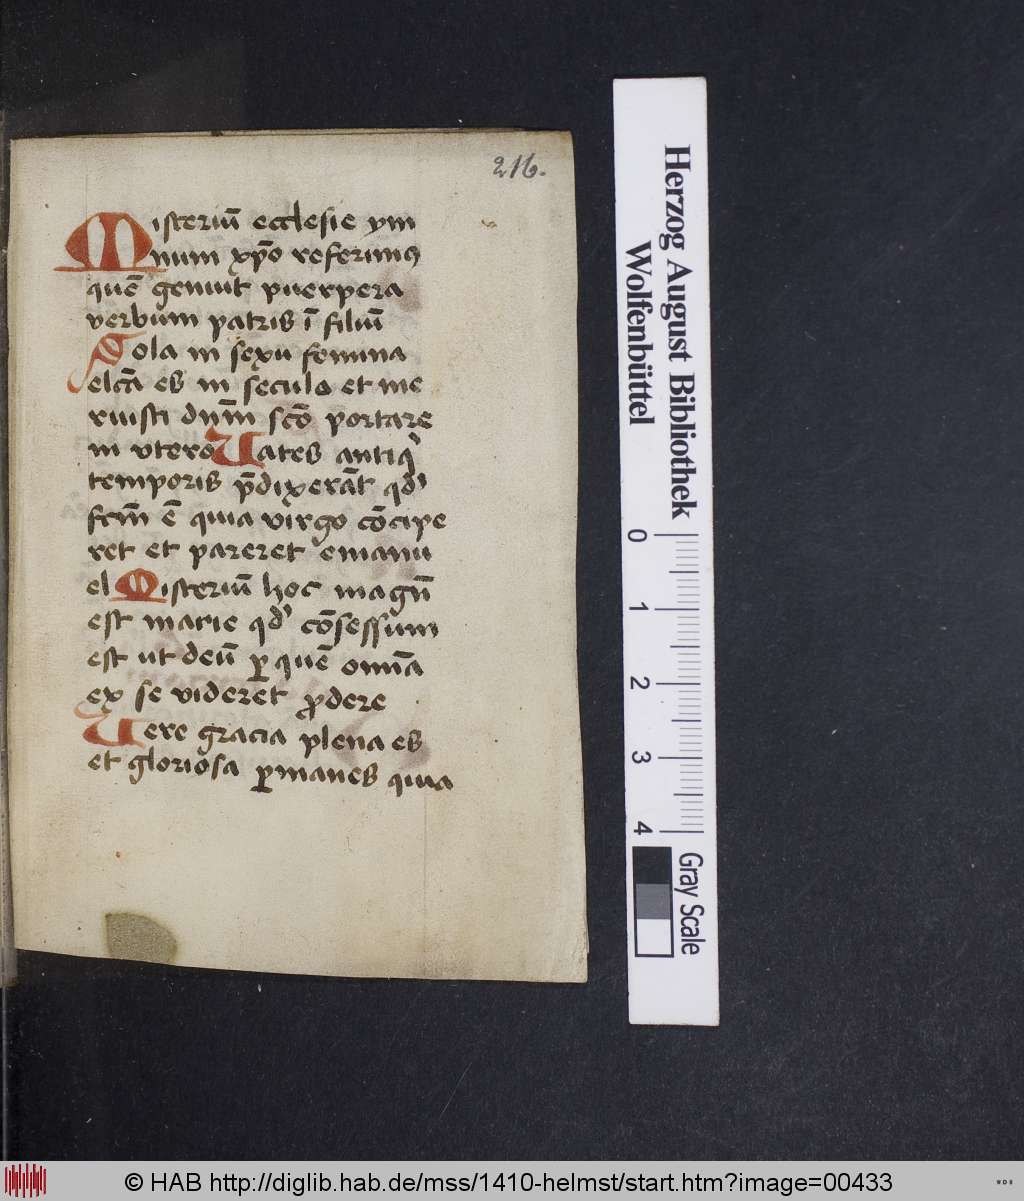 216.
Misteriū ecclesie ym
num xp̄o referimꝰ
quē genuit puerpera
verbum patris ī filiū
Sola in sexu femina
elcā es in seculo et me
ruisti dn̄m scō portare
in utero Uates antiqꝰ
temporis p̄dixerāt qd
fcm̄ ē quia virgo cōcipe
ret et pareret emanu
el Misteriū hoc magn̄
est marie qd cōsessum
est ut deū ꝑ quē omīa
ex se videret ꝓdere
Uere gracia plena es
et gloriosa ꝑmanes quia
Herzog August Bibliothek
Wolfenbüttel
0 1 2 3 4
Gray Scale
© HAB http://diglib.hab.de/mss/1410-helmst/start.htm?image=00433